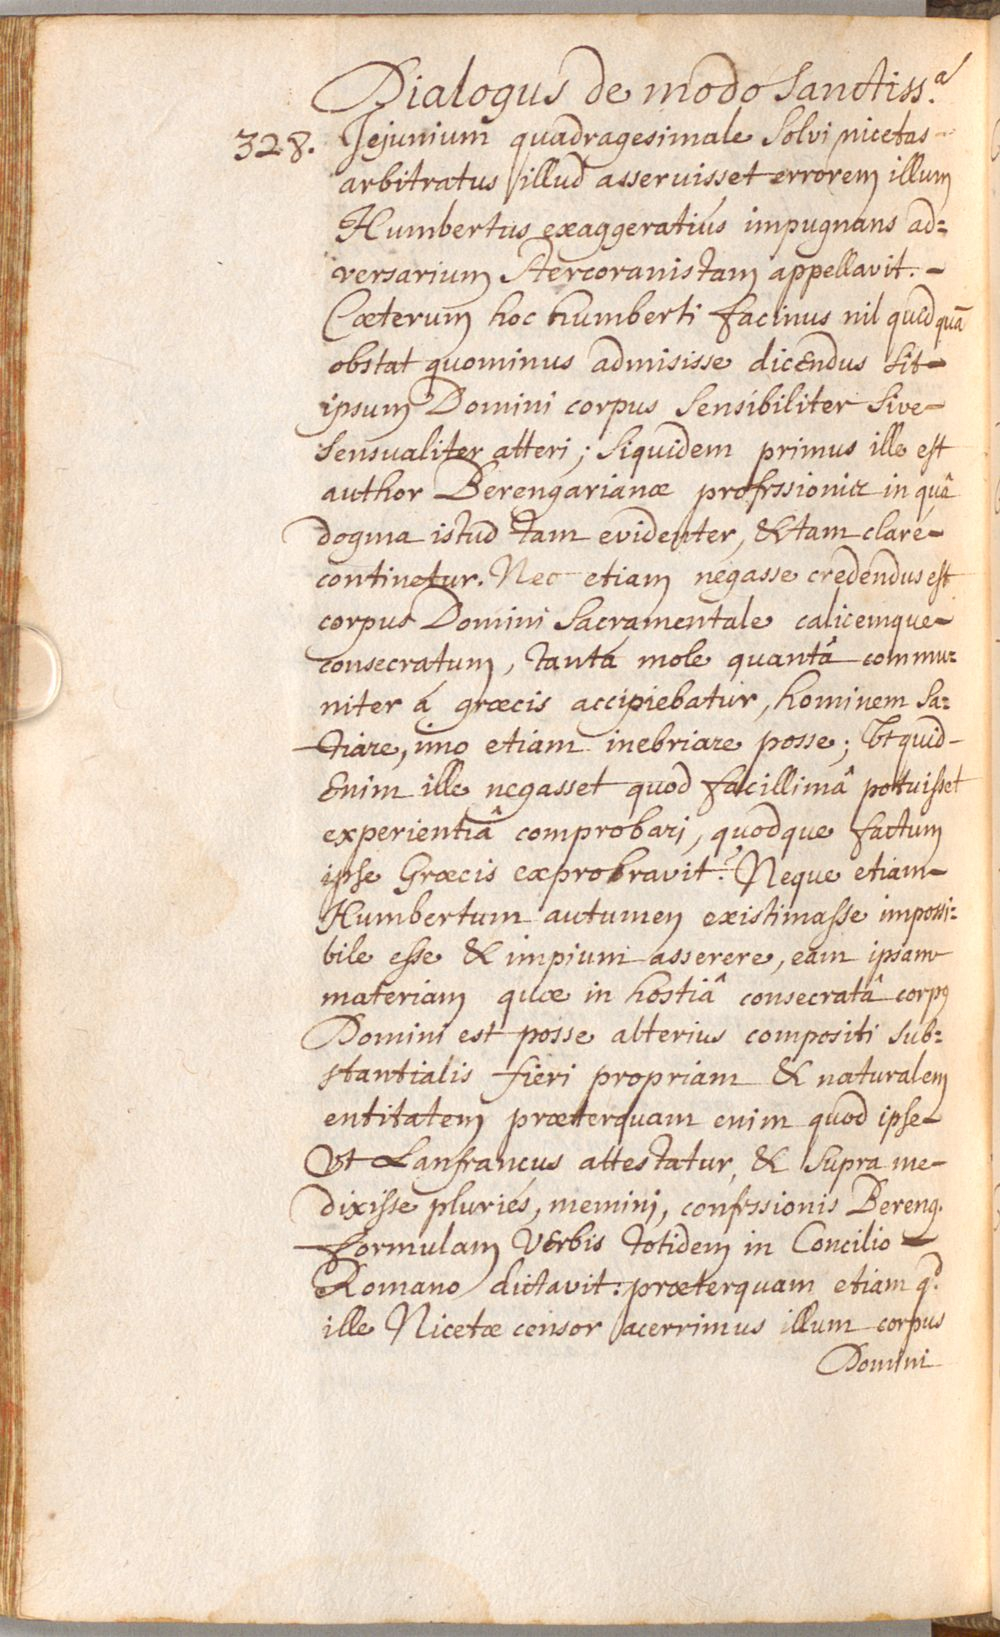 Dialogus de modo Sanctiss.ª
328. Jejunium quadragesimale Solvi nicetas -
arbitratus illud asseruisset errorem illum
Humbertus exaggeratiús impugnans ad=
versarium Stercoranistam appellavit. -
Cæterum hoc humberti facinus nil quidquã
obstat quominus admisisse dicendus sit -
ipsum Domini corpus Sensibiliter Sive -
Sensualiter atteri; Siquidem primus ille est
author Berengarianæ professionis in quâ
dogma istud tam evidenter, & tam claré -
continetur. Nec etiam negasse credendus est
corpus Domini Sacramentale calicemque -
consecratum, tantâ mole quantâ commu=
niter á græcis accipiebatur, hominem Sa=
tiare, imo etiam inebriare posse; Vt quid -
Enim ille negasset quod facillimâ potuisset
experientiâ comprobari, quodque factum
ipse Græcis exprobravit? Neque etiam -
Humbertum autumem existimasse impossi=
bile esse & impium asserere, eam ipsam
materiam quæ in hostiâ consecratâ corpꝰ
Domini est posse alterius compositi sub=
stantialis fieri propriam & naturalem
entitatem præterquam enim quod ipse -
Vt Lanfrancus attestatur, & Supra me -
dixisse pluriés, memini, confessionis Bereng.
formulam Verbis totidem in Concilio -
Romano dictavit: præterquam etiam q.ᵈ
ille Nicetæ censor acerrimus illum corpus
Domini